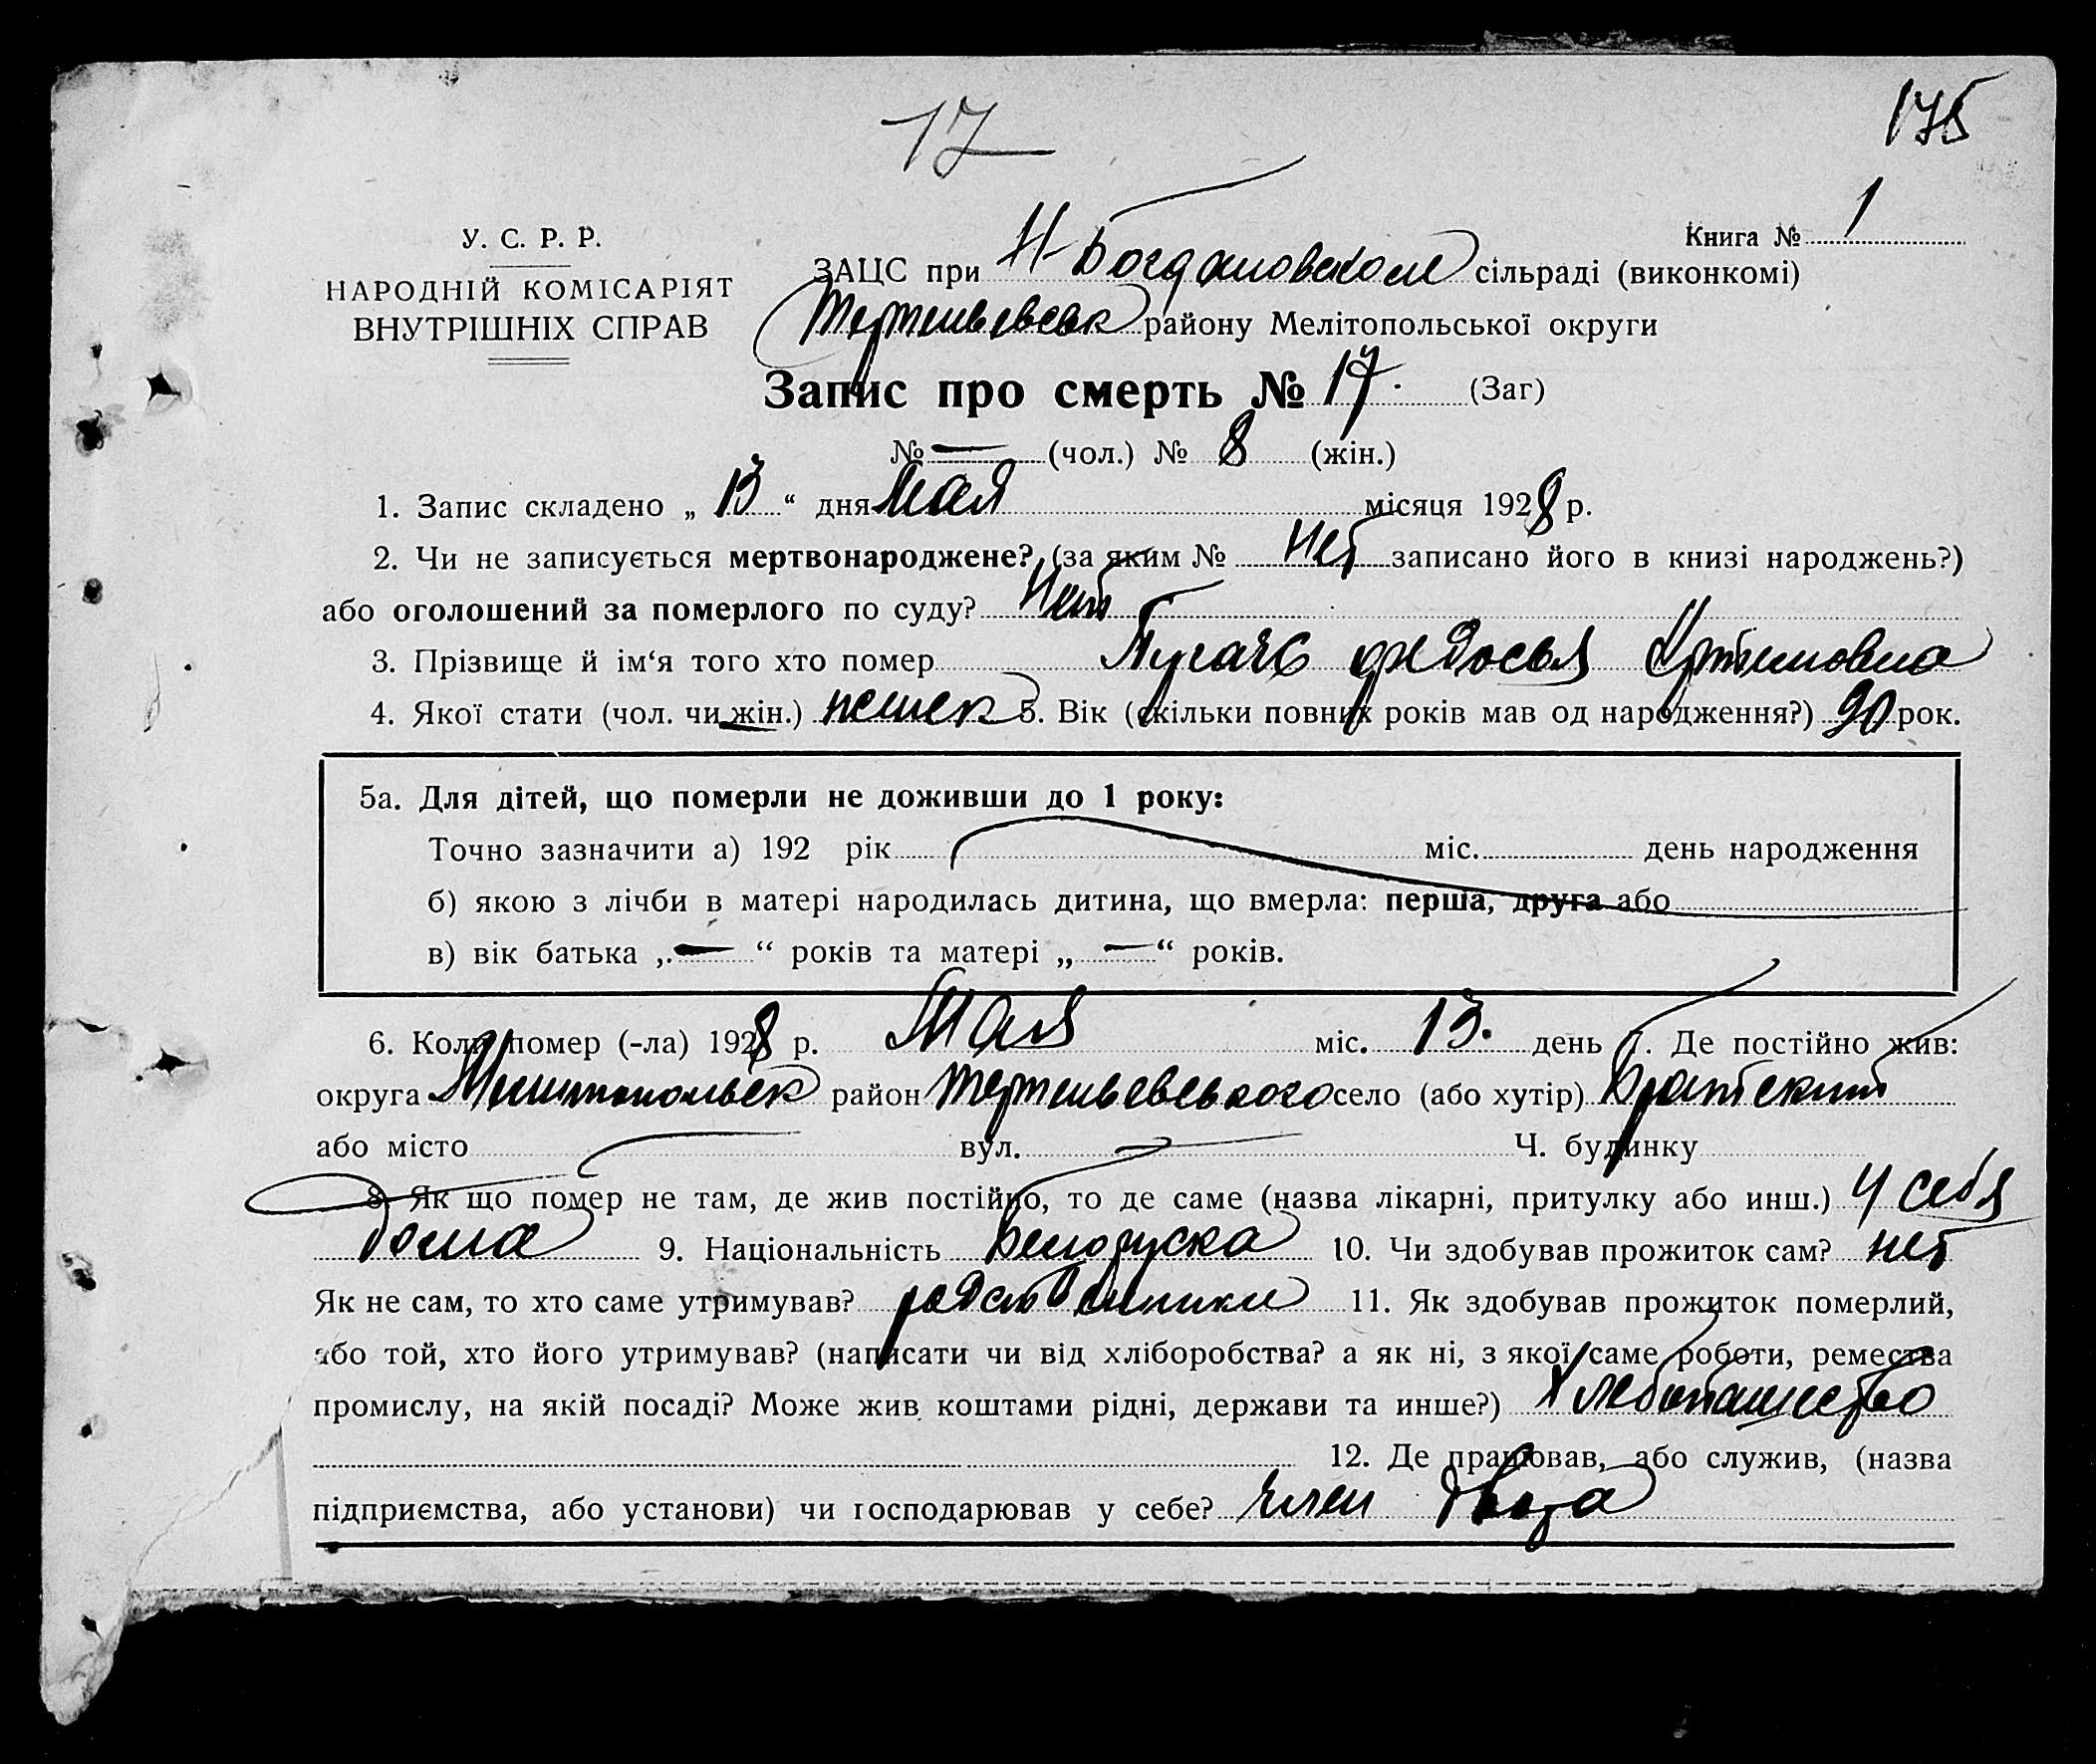 17
175
У. С. Р. Р.
НАРОДНІЙ КОМІСАРІЯТ
ВНУТРІШНІХ СПРАВ
Книга № 1
ЗАЦС при Н-Богдановском сільраді (виконкомі)
району Мелітопольської округи
Запис про смерть № 17. (Заг)
№ — (чол.) № 8 (жін.)
1. Запис складено „ 13 “ дня Мая місяця 1928 р.
2. Чи не записується мертвонароджене? (за яким № Нет записано його в книзі народжень?)
або оголошений за померлого по суду? Нет
3. Прізвище й ім‘я того хто помер Пугачь Федосья Артемовна
4. Якої стати (чол. чи жін.) 5. Вік (скільки повних років мав од народження?) 90 рок.
5а. Для дітей, що померли не доживши до 1 року:
Точно зазначити а) 192 рік міс. день народження
б) якою з лічби в матері народилась дитина, що вмерла: перша, друга або
в) вік батька „ — “ років та матері „ — “ років.
6. Коли помер (-ла) 1928 р. Мая міс. 13. день 7. Де постійно жив:
округа Мелитопольск район село (або хутір) Братский
або місто вул. Ч. будинку
8. Як що помер не там, де жив постійно, то де саме (назва лікарні, притулку або инш.) У себя
дома 9. Національність Белоруска 10. Чи здобував прожиток сам? нет
Як не сам, то хто саме утримував? родственники 11. Як здобував прожиток померлий,
або той, хто його утримував? (написати чи від хліборобства? а як ні, з якої саме роботи, ремества
промислу, на якій посаді? Може жив коштами рідні, держави та инше?) Хлебопашество
12. Де працював, або служив, (назва
підприємства, або установи) чи господарював у себе? Член двора